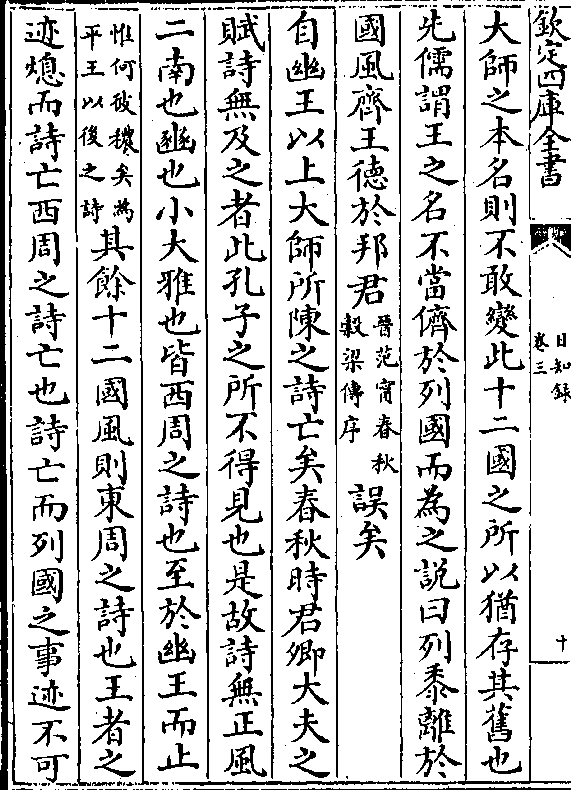 欽定四庫全書
日知録
卷三
十
大師之本名則不敢變此十二國之所以猶存其舊也
先儒謂王之名不當儕於列國而為之説曰列黍離於
國風齊王德於邦君晉范甯春秋穀梁傳序誤矣
自幽王以上大師所陳之詩亡矣春秋時君卿大夫之
賦詩無及之者此孔子之所不得見也是故詩無正風
二南也豳也小大雅也皆西周之詩也至於幽王而止
惟何彼穠矣為平王以後之詩其餘十二國風則東周之詩也王者之
迹熄而詩亡西周之詩亡也詩亡而列國之事迹不可